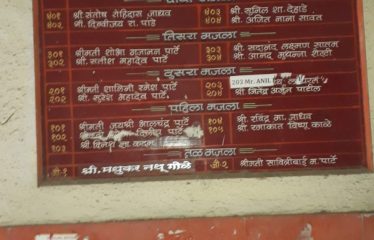 ४०१ श्री संतोष रोहिदास जाधव ४०३ श्री सुनिल शा. देहाडे
४०२ श्री दिग्वीजय रा. पार्डे ४०४ श्री अजित नाना सावंत
तिसरा मजला
३०१ श्रीमती शोभा गजानन पार्टे ३०३ श्री सदानंद लक्ष्मण सालम
३०२ श्री सतीश महादेव पार्टे ३०४ श्री आनंद मुथन्ना शेट्टी
दुसरा मजला
२०१ श्रीमती शालिनी रमेश पार्टे 203 Mr. ANIL
२०२ श्री सुरेश महादेव पार्टे २०४ श्री जितेंद्र अर्जुन पाटील
पहिला मजला
१०१ श्रीमती जयश्री भालचंद्र पार्टे १०४ श्री रविंद्र मा. जाधव
१०२ दिलीप पार्टे १०५ श्री रमाकांत विष्णू काळे
१०३ श्री दिनेश सा. कदम
तळ मजला
जी-१ श्री. मधुकर नथू गोळे जी-२ श्रीमती सावित्रीबाई म. पार्टे